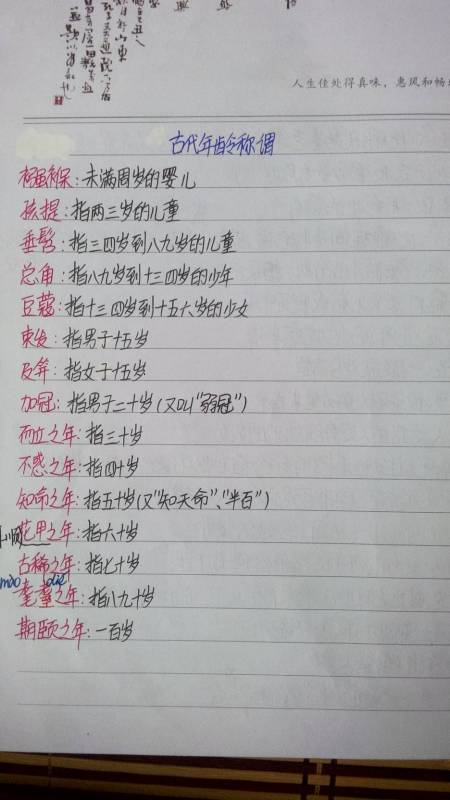 人生佳处得真味，惠风和畅
古代年龄称谓
襁褓：未满周岁的婴儿
孩提：指两三岁的儿童
垂髫：指三四岁到八九岁的儿童
总角：指八九岁到十三四岁的少年
豆蔻：指十三四岁到十五六岁的少女
束发：指男子十五岁
及笄：指女子十五岁
加冠：指男子二十岁（又叫“弱冠”）
而立之年：指三十岁
不惑之年：指四十岁
知命之年：指五十岁（又“知天命”、“半百”）
花甲之年：指六十岁
古稀之年：指七十岁
mào dié
耄耋之年：指八九十岁
期颐之年：一百岁